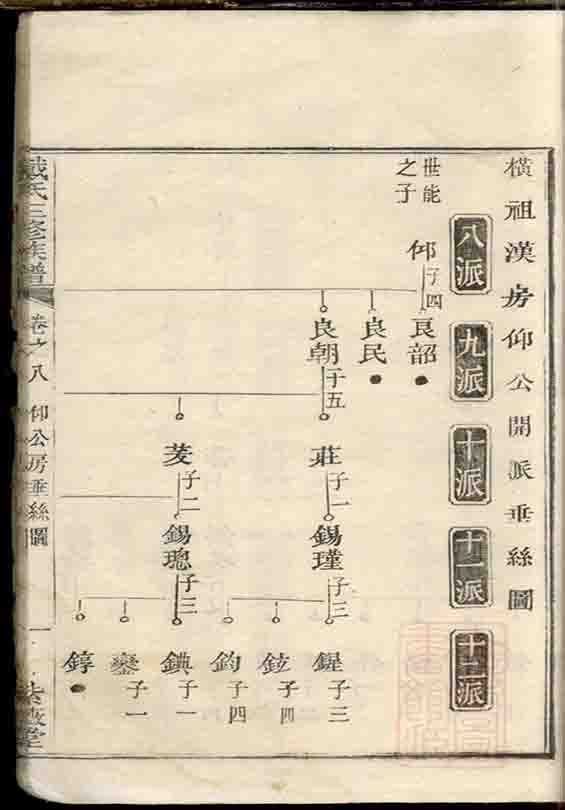 橫祖漢房仰公開派垂絲圖
八派
九派
十派
十一派
十二派
世能
之子
仰 子四
良韶
良民
良朝 子五
莊 子一
錫瑾 子三
鍟 子三
鉉 子四
鈞 子四
茭 子二
錫璁 子三
錪 子一
鑾 子一
錞
戴氏三修族譜
卷之八 仰公房垂絲圖
一